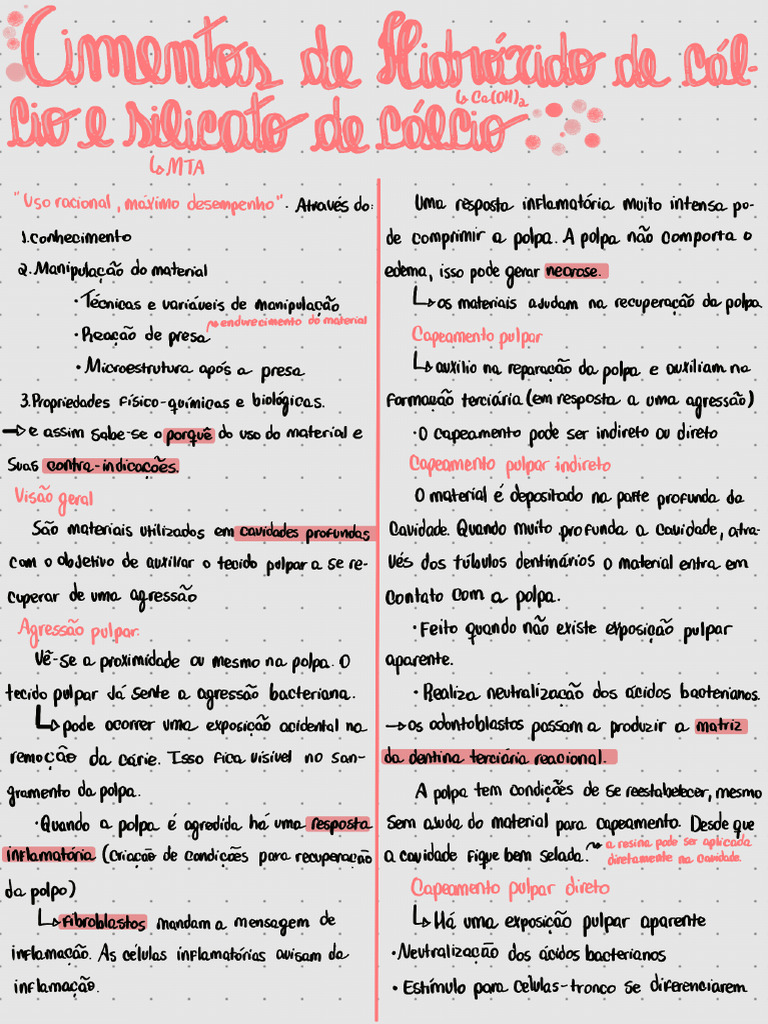 Cimentos de Hidróxido de cál-
↳ Ca(OH)₂
cio e silicato de cálcio
↳ MTA
"Uso racional, máximo desempenho". Através do:
1. conhecimento
2. Manipulação do material
• Técnicas e variáveis de manipulação
• Reação de presa
↝ endurecimento do material
• Microestrutura após a presa
3. Propriedades físico-químicas e biológicas.
→ e assim sabe-se o porquê do uso do material e
suas contra-indicações.
Visão geral
São materiais utilizados em cavidades profundas
com o objetivo de auxiliar o tecido pulpar a se re-
cuperar de uma agressão
Agressão pulpar.
Vê-se a proximidade ou mesmo na polpa. O
tecido pulpar já sente a agressão bacteriana.
↳ pode ocorrer uma exposição acidental na
remoção da cárie. Isso fica visível no san-
gramento da polpa.
• Quando a polpa é agredida há uma resposta
inflamatória (criação de condições para recuperação
da polpo)
↳ Fibroblastos mandam a mensagem de
inflamação. As células inflamatórias avisam da
inflamação.
Uma resposta inflamatória muito intensa po-
de comprimir a polpa. A polpa não comporta o
edema, isso pode gerar necrose.
↳ os materiais ajudam na recuperação da polpa.
Capeamento pulpar
↳ auxílio na reparação da polpa e auxiliam na
formação terciária (em resposta a uma agressão)
• O capeamento pode ser indireto ou direto
Capeamento pulpar indireto
O material é depositado na parte profunda da
cavidade. Quando muito profunda a cavidade, atra-
vés dos túbulos dentinários o material entra em
contato com a polpa.
• Feito quando não existe exposição pulpar
aparente.
• Realiza neutralização dos ácidos bacterianos.
→ os odontoblastos passam a produzir a matriz
da dentina terciária reacional.
A polpa tem condições de se reestabelecer, mesmo
sem ajuda do material para capeamento. Desde que
a cavidade fique bem selada. ↝ a resina pode ser aplicada
diretamente na cavidade.
Capeamento pulpar direto
↳ Há uma exposição pulpar aparente
• Neutralização dos ácidos bacterianos
• Estímulo para células-tronco se diferenciarem